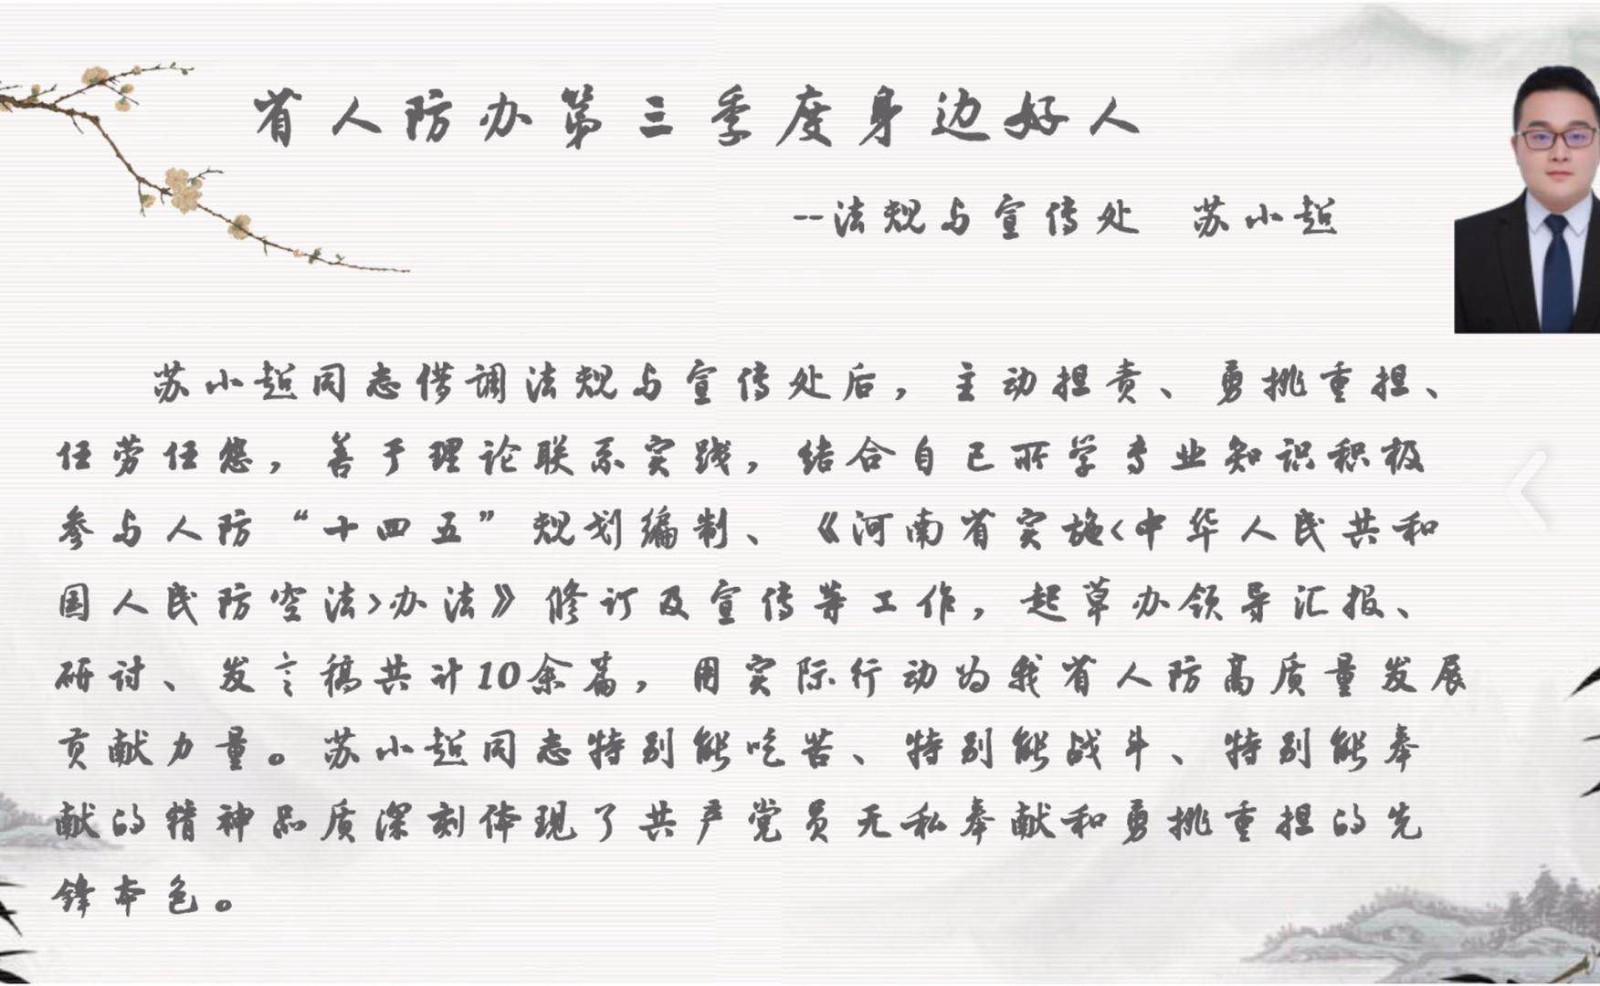 省人防办第三季度身边好人
--法规与宣传处 苏小超
苏小超同志借调法规与宣传处后，主动担责、勇挑重担、
任劳任怨，善于理论联系实践，结合自己所学专业知识积极
参与人防“十四五”规划编制、《河南省实施<中华人民共和
国人民防空法>办法》修订及宣传等工作，起草办领导汇报、
研讨、发言稿共计10余篇，用实际行动为我省人防高质量发展
贡献力量。苏小超同志特别能吃苦、特别能战斗、特别能奉
献的精神品质深刻体现了共产党员无私奉献和勇挑重担的先
锋本色。